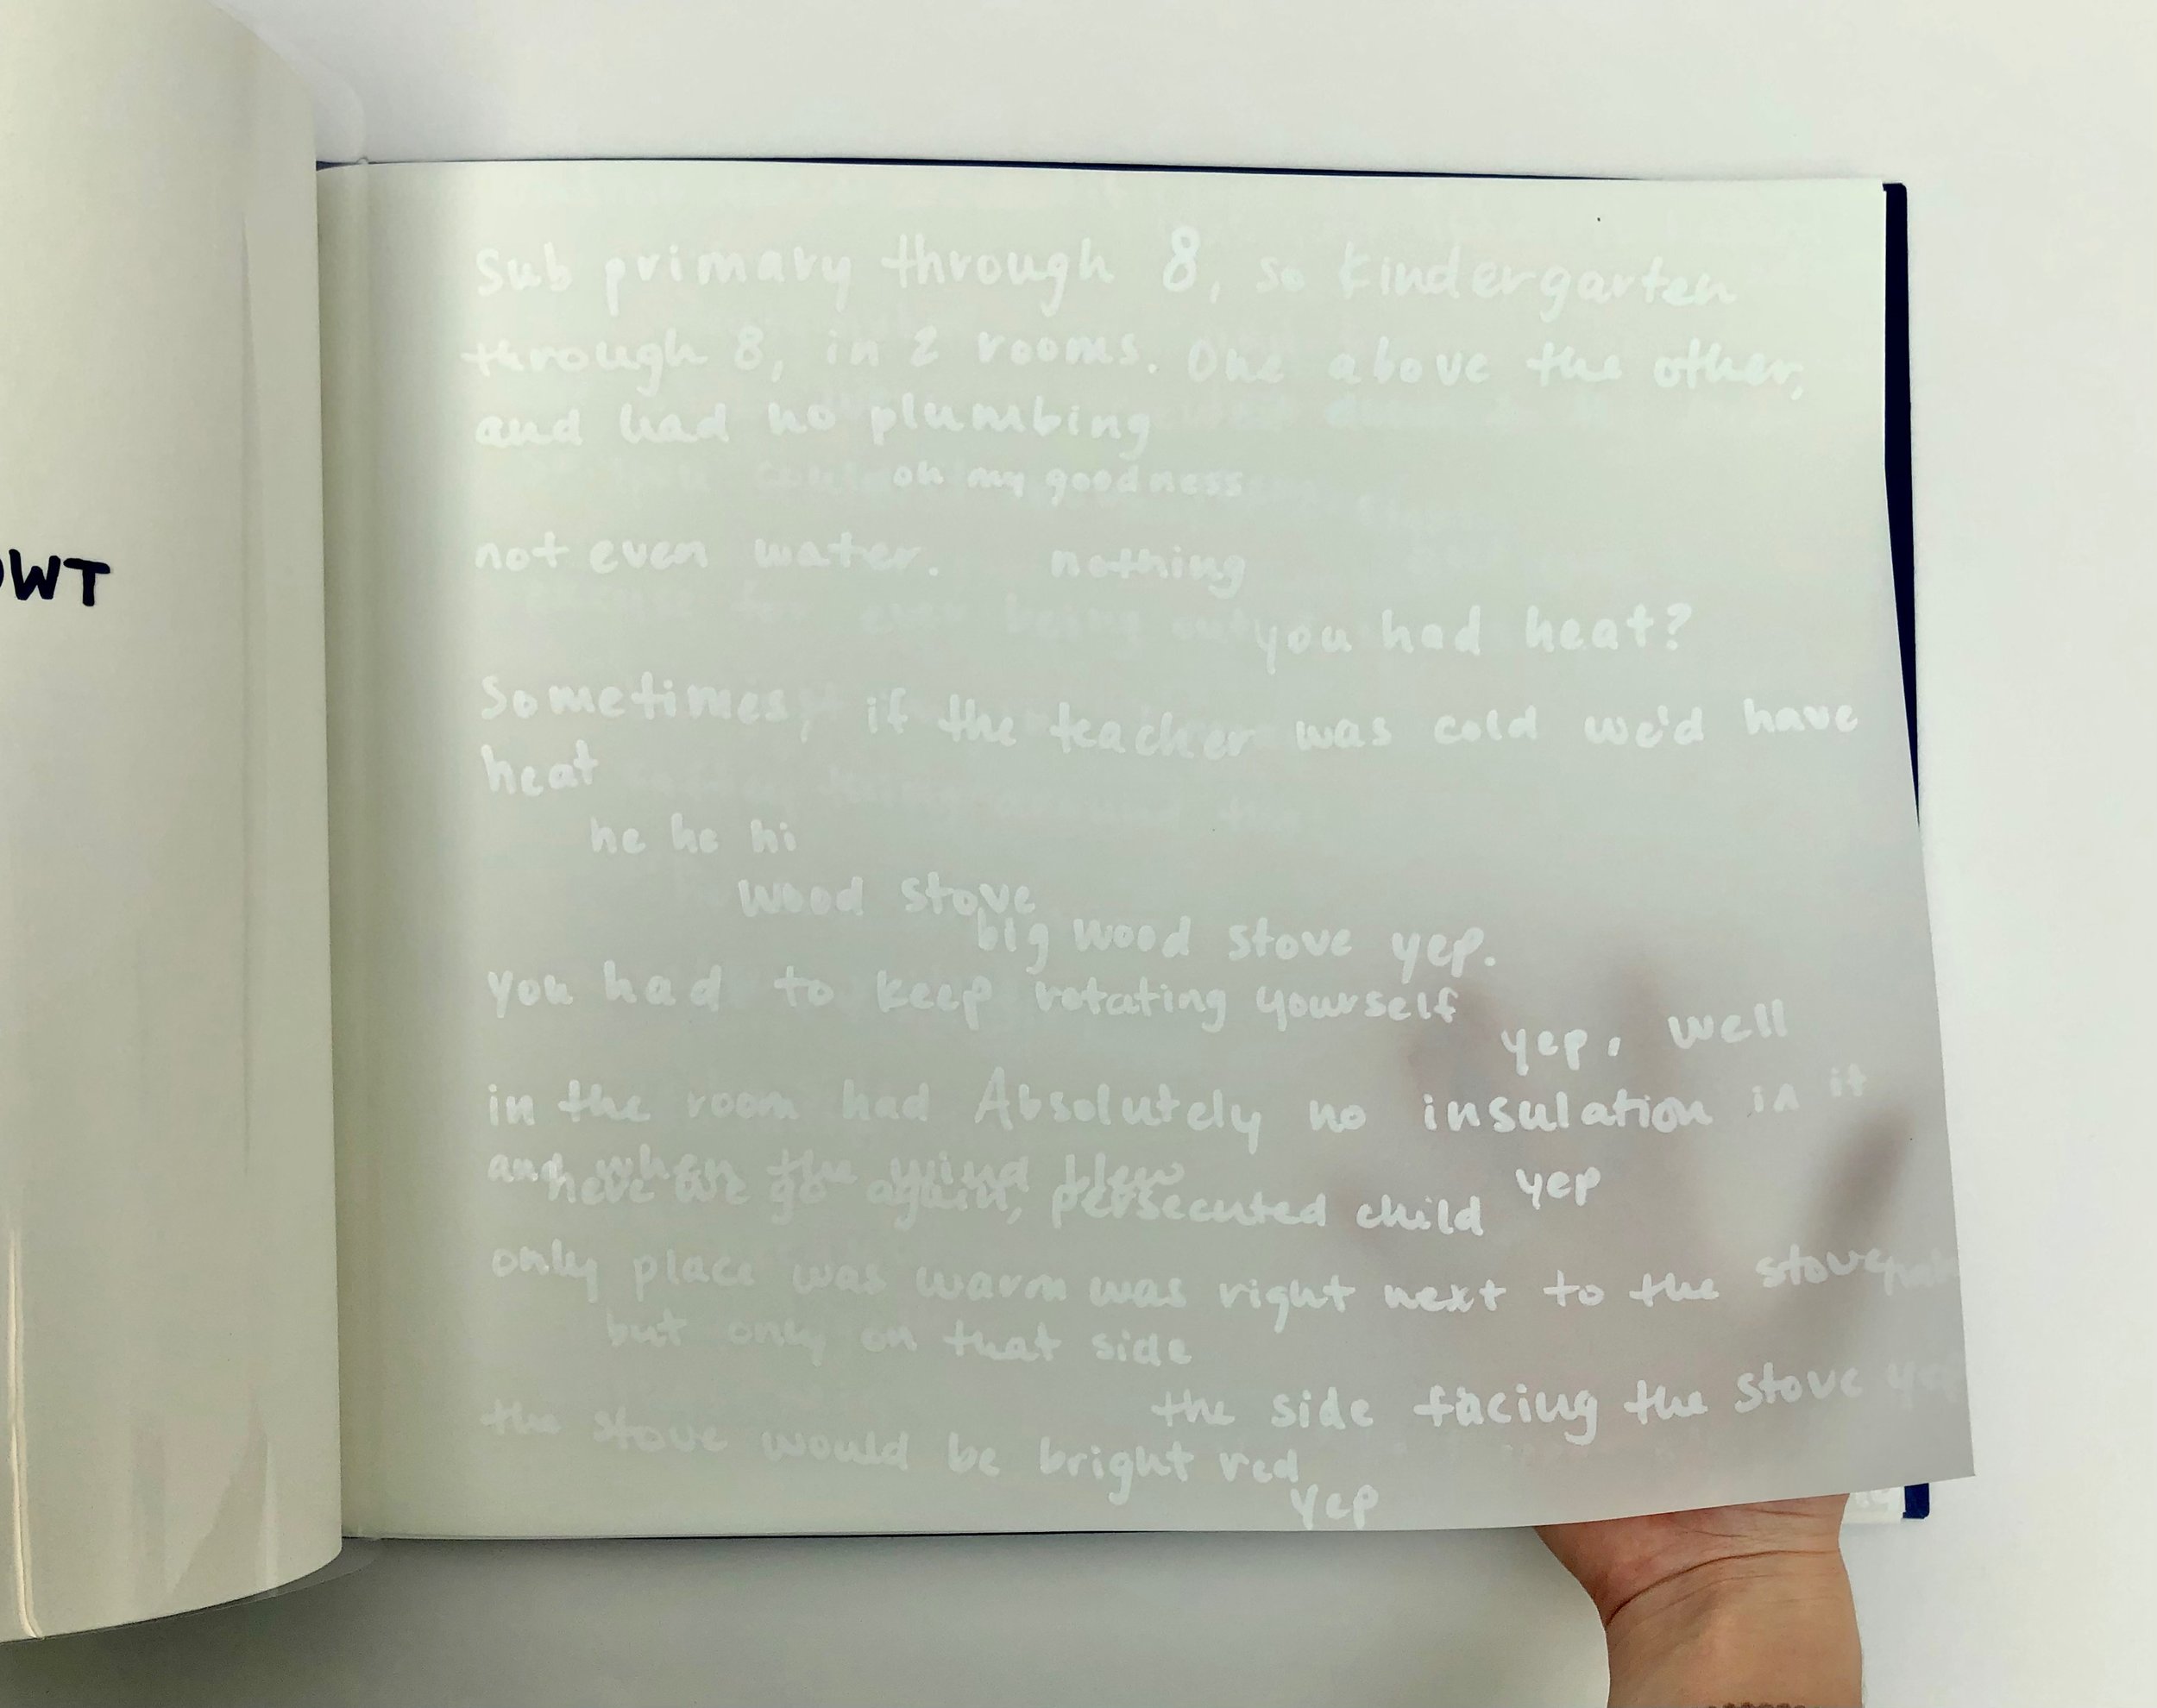 OWT
Sub primary through 8, so kindergarten
through 8, in 2 rooms. One above the other,
and had no plumbing
oh my goodness
not even water. nothing
you had heat?
Sometimes, if the teacher was cold we'd have
heat
he he hi
wood stove
big wood stove yep.
you had to keep rotating yourself
yep, well
in the room had Absolutely no insulation in it
and when the wind blew
yep
here we go again, persecuted child
only place was warm was right next to the stove
but only on that side
the side facing the stove yep
the stove would be bright red
yep